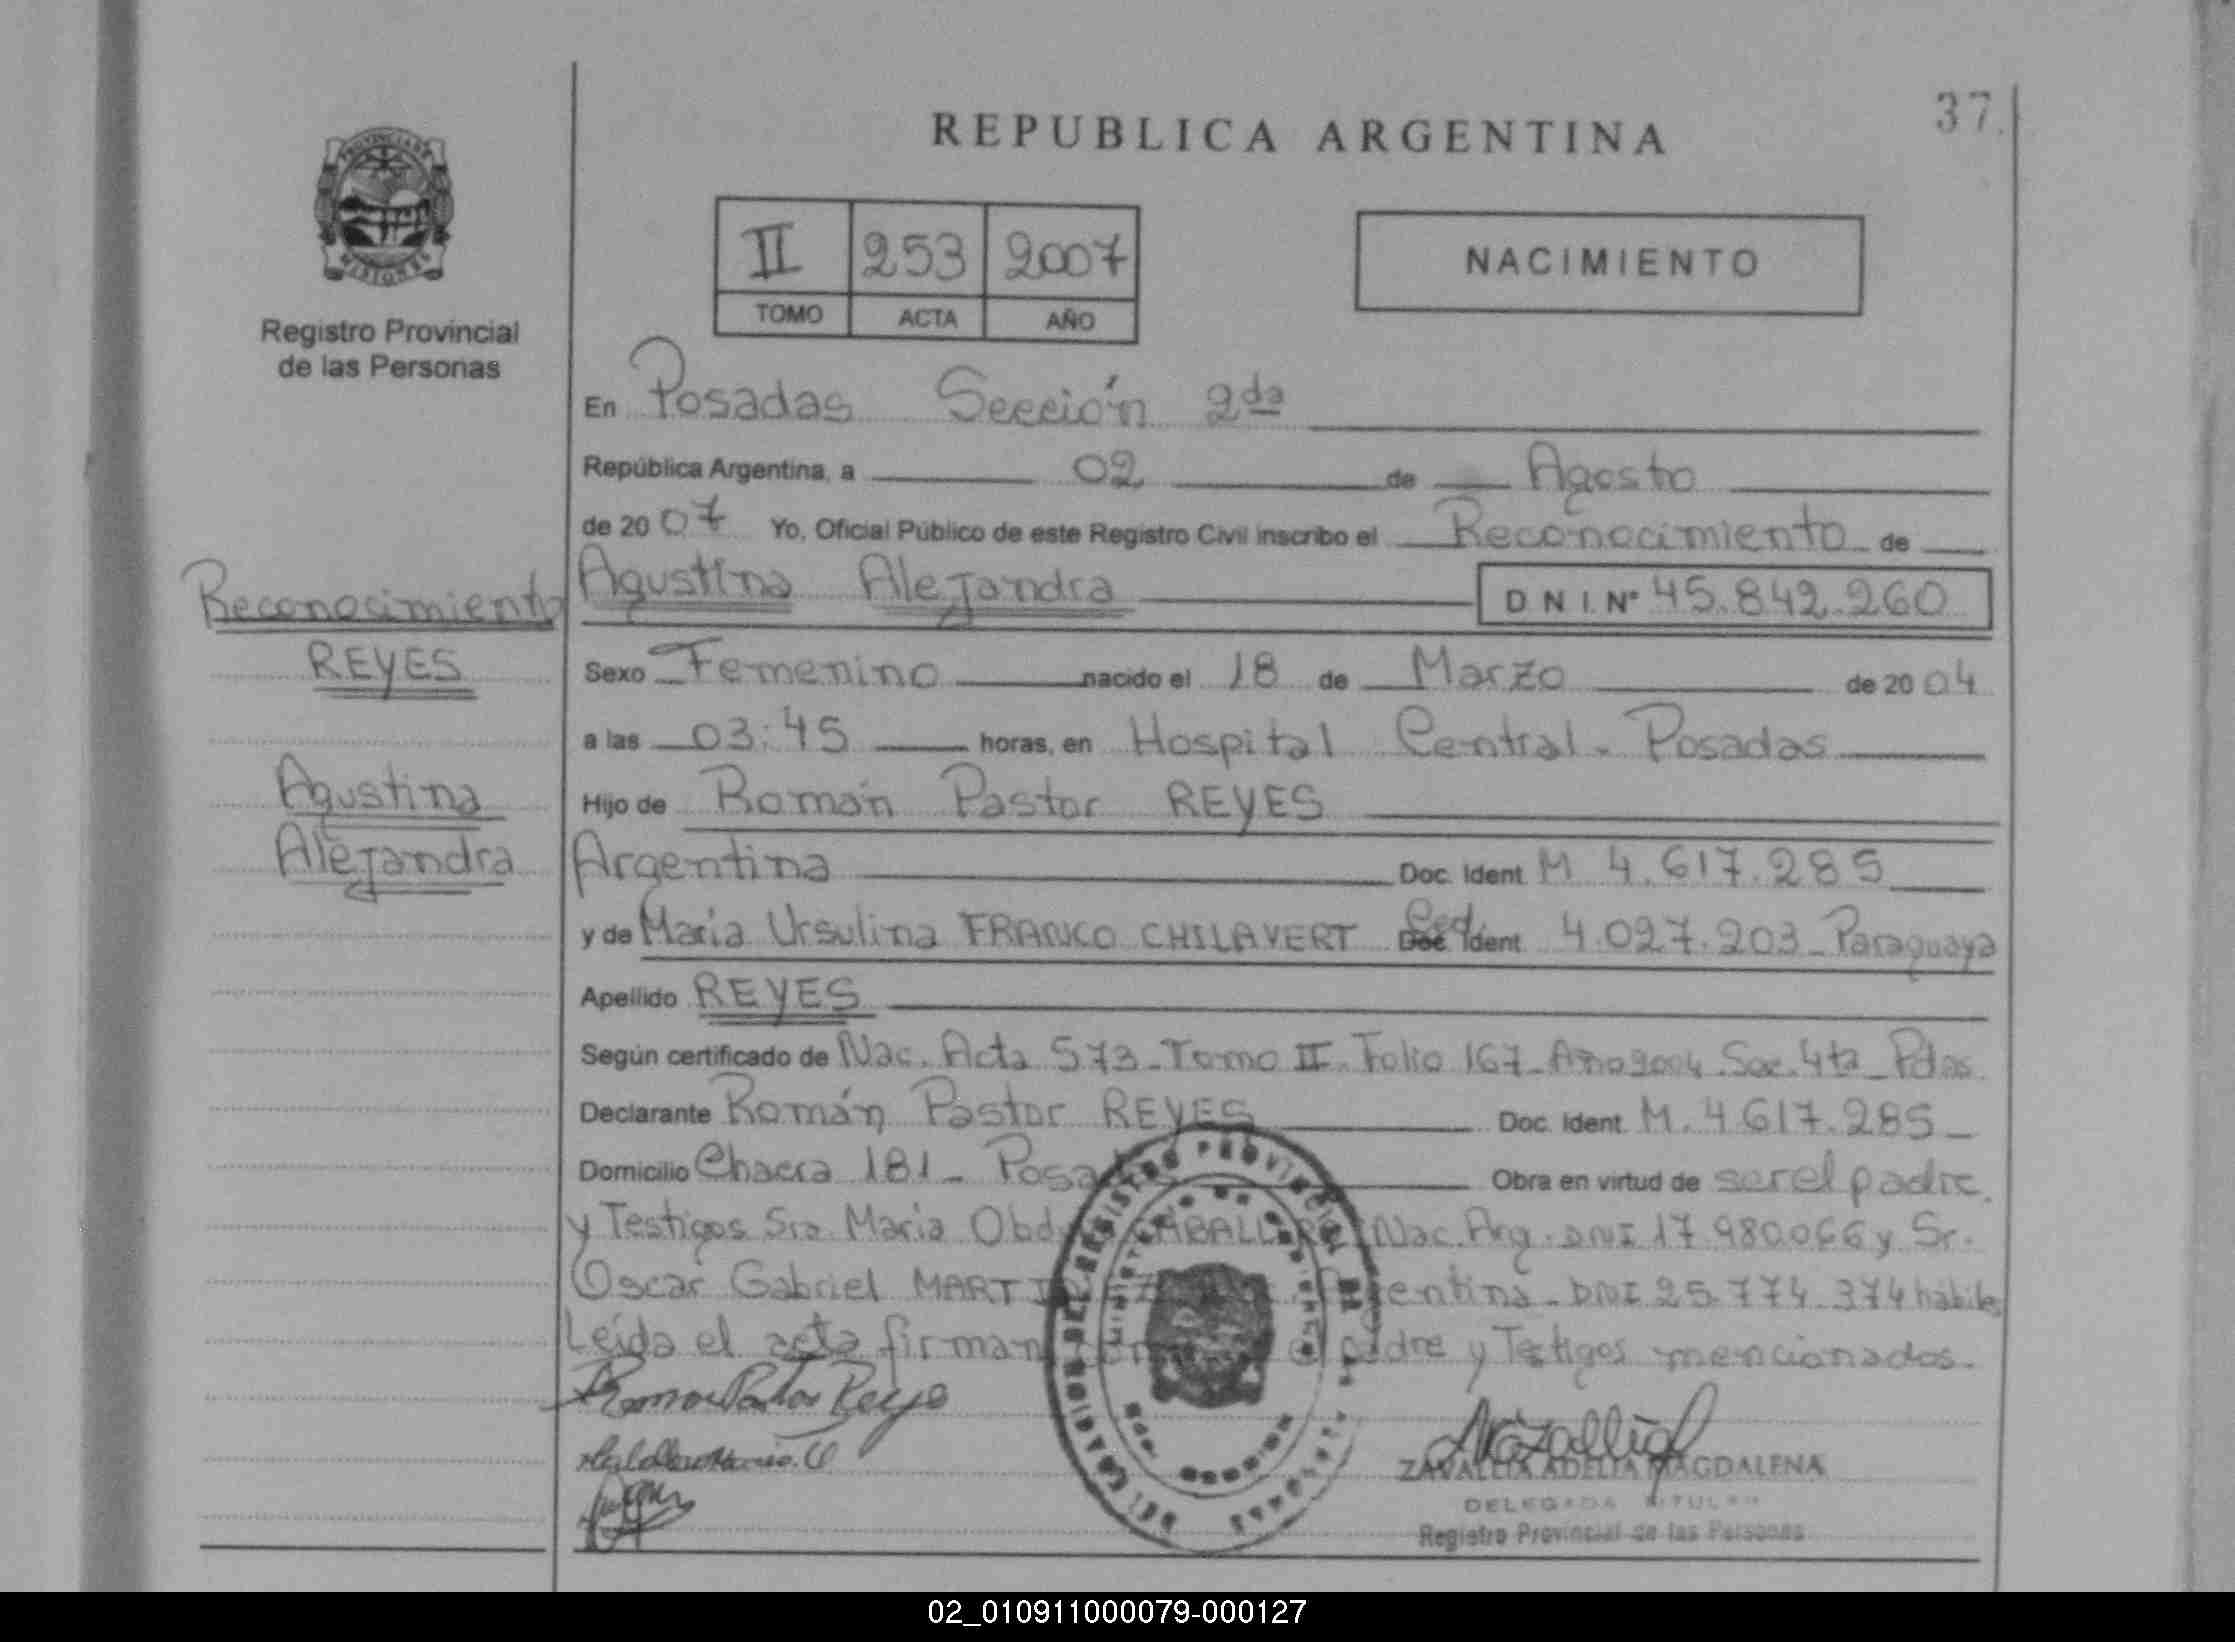 37.
REPUBLICA ARGENTINA
PROVINCIA DE
MISIONES
II 253 2007
TOMO ACTA AÑO
NACIMIENTO
Registro Provincial
de las Personas
En Posadas Sección 2da
República Argentina, a 02 de Agosto
de 2007 Yo, Oficial Público de este Registro Civil inscribo el Reconocimiento de
Agustina Alejandra D N I. Nº 45.842.260
Reconocimiento
REYES
Agustina
Alejandra
Sexo Femenino nacido el 18 de Marzo de 2004
a las 03:45 horas, en Hospital Central - Posadas
Hijo de Román Pastor REYES
Argentina Doc. Ident M 4.617.285
y de Maria Ursulina FRANCO CHILAVERT Doc Ced Ident 4.027.203 - Paraguaya
Apellido REYES
Según certificado de Nac. Acta 573 - Tomo II - Folio 167 - Año 2004 - Sec. 4ta - Pdas.
Declarante Román Pastor REYES Doc. Ident. M. 4.617.285 -
Domicilio Chacra 181 - Obra en virtud de ser el padre.
y Testigos Sra. Maria Nac. Arg. DNI 17.980.066 y Sr.
Oscar Gabriel DNI 25.774.374 hábiles
Leída el acta firman padre y Testigos mencionados.
Roman Pastor Reyes
ZAVALLIA ADELIA MAGDALENA
DELEGADA TITULAR
Registro Provincial de las Personas
02_010911000079-000127